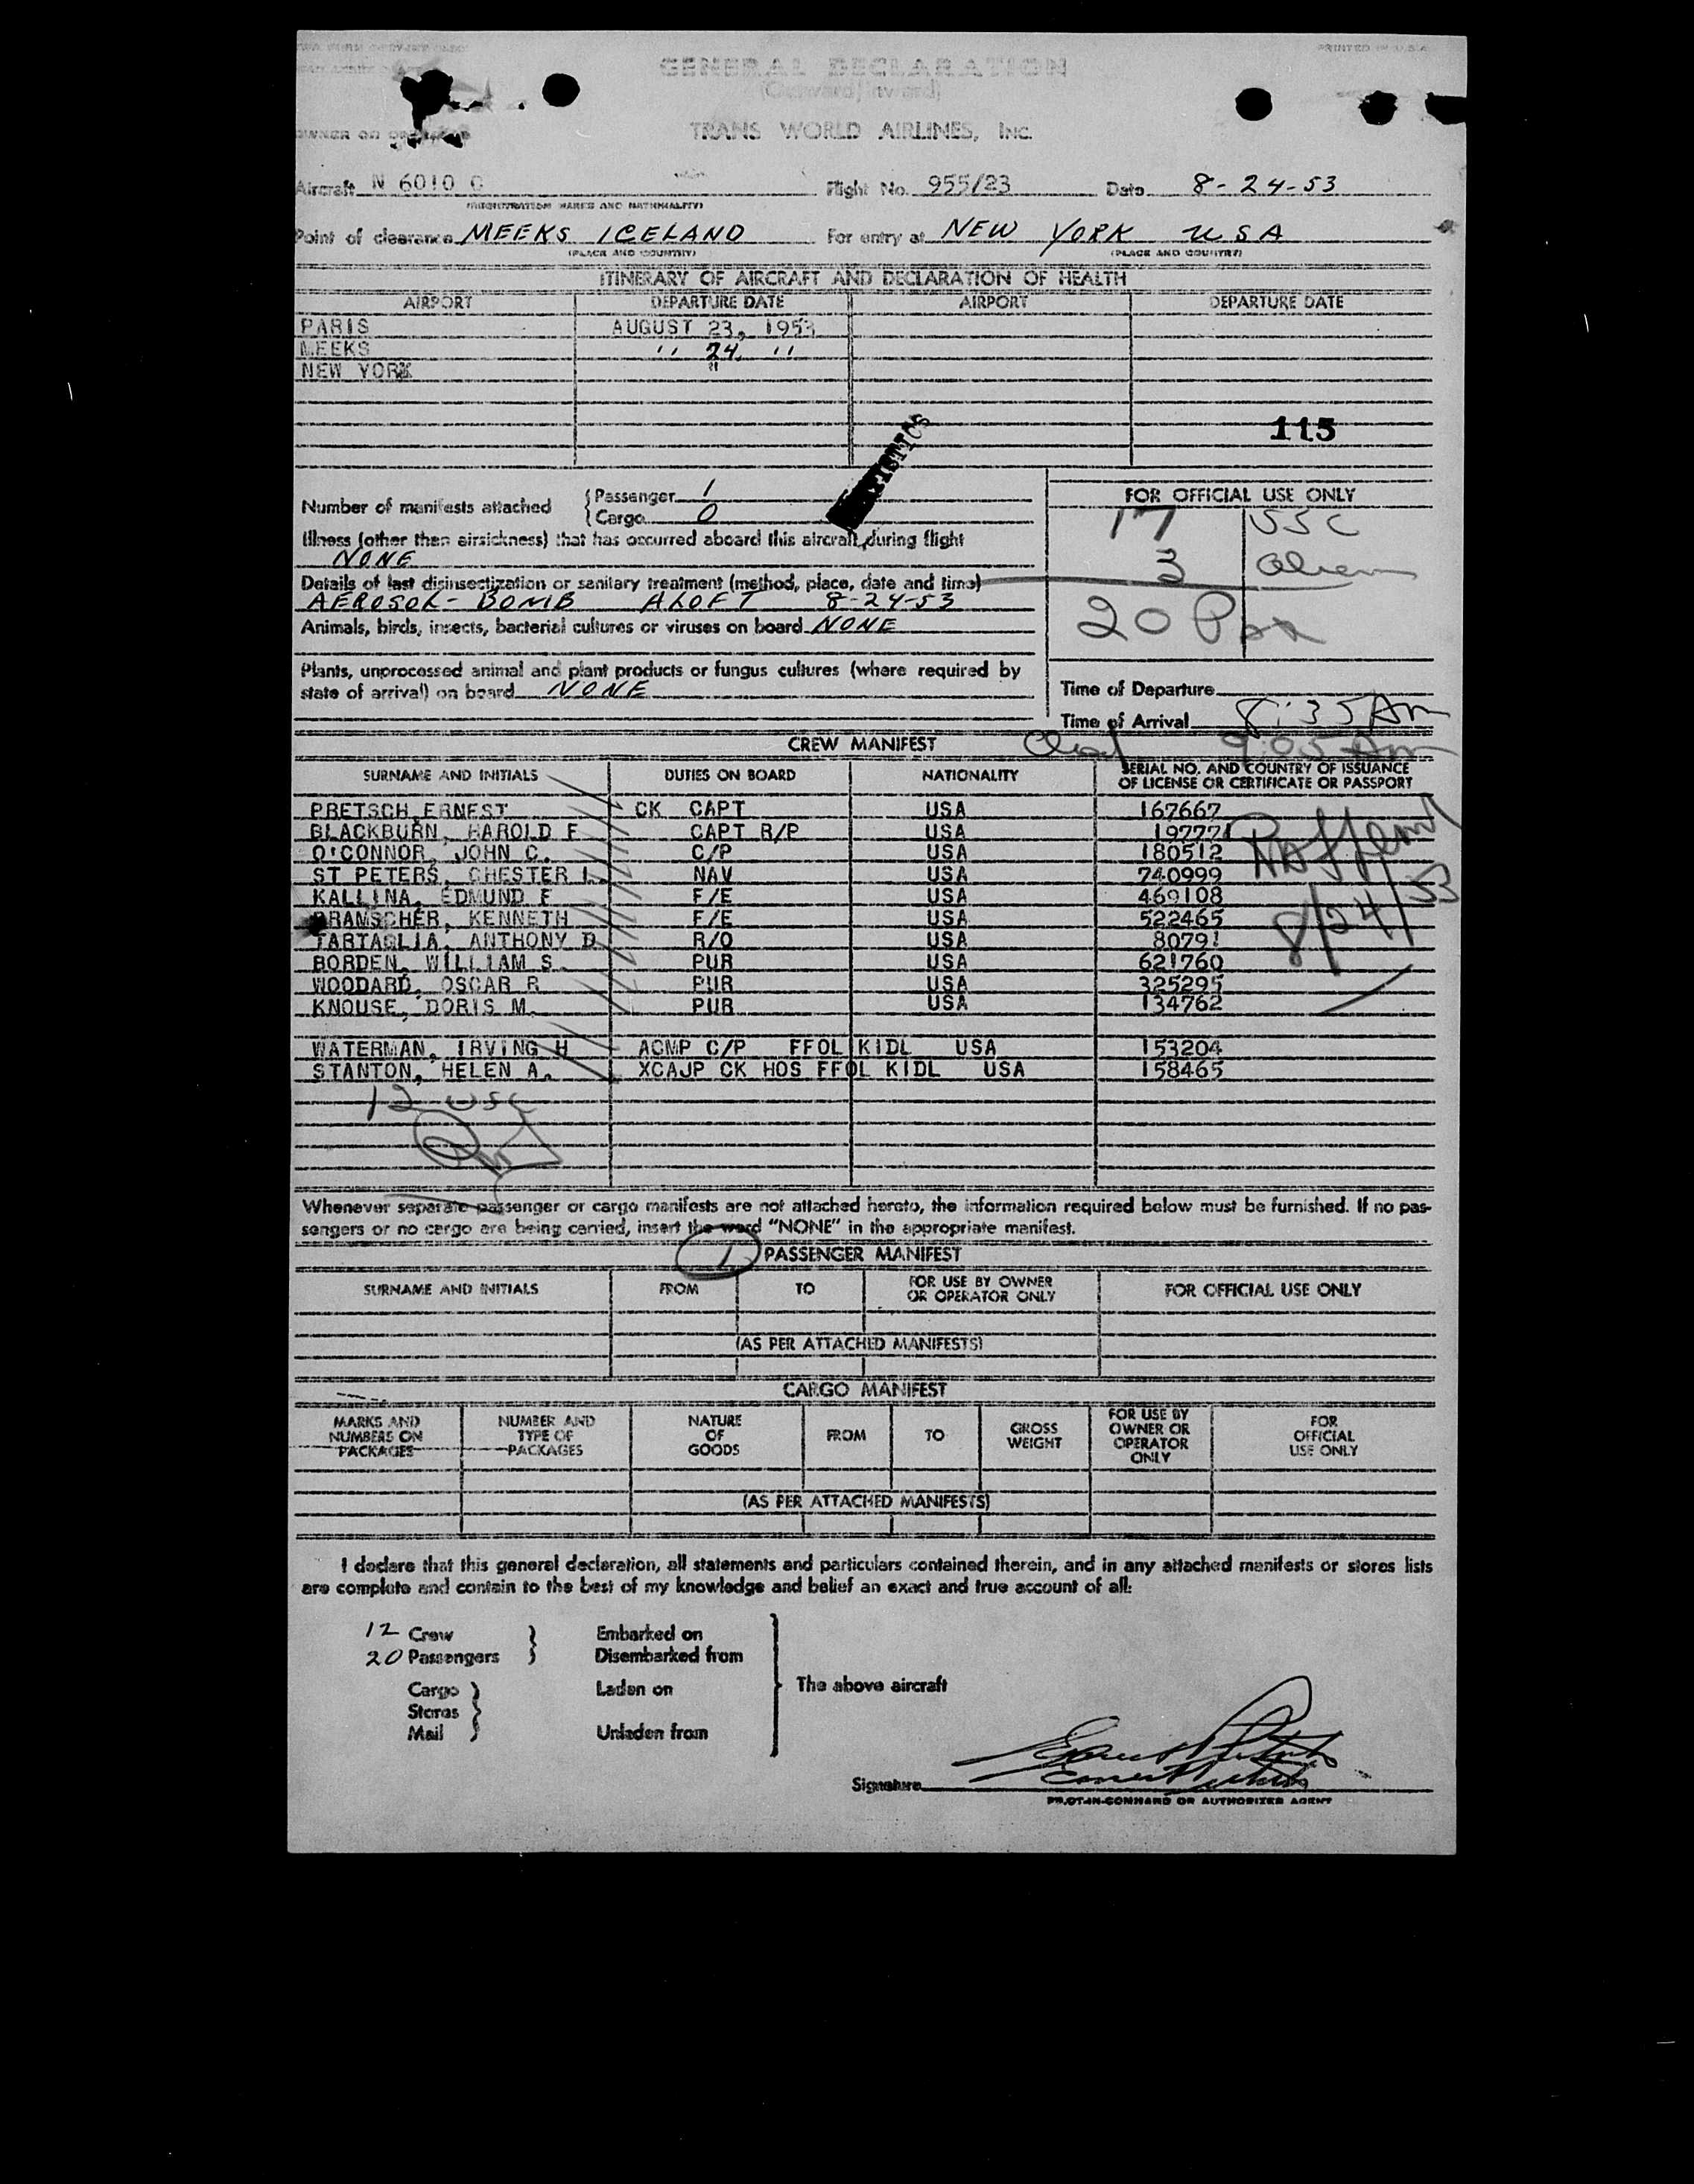 PRINTED IN U.S.A.
GENERAL DECLARATION
(Outward/Inward)
OWNER OR
TRANS WORLD AIRLINES, Inc.
Aircraft N 6010 C Flight No. 955/23 Date 8-24-53
(REGISTRATION MARKS AND NATIONALITY)
Point of clearance MEEKS ICELAND For entry at NEW YORK USA
(PLACE AND COUNTRY) (PLACE AND COUNTRY)
ITINERARY OF AIRCRAFT AND DECLARATION OF HEALTH
AIRPORT DEPARTURE DATE AIRPORT DEPARTURE DATE
PARIS AUGUST 23, 1953
MEEKS " 24 "
NEW YORK "
115
Number of manifests attached { Passenger 1
{ Cargo 0
FOR OFFICIAL USE ONLY
17 USC
Illness (other than airsickness) that has occurred aboard this aircraft during flight
NONE
3 Aliens
Details of last disinsectization or sanitary treatment (method, place, date and time)
AEROSOL-BOMB ALOFT 8-24-53
20 Pax
Animals, birds, insects, bacterial cultures or viruses on board NONE
Plants, unprocessed animal and plant products or fungus cultures (where required by
state of arrival) on board NONE
Time of Departure
Time of Arrival 8:35 Am
9:05 Am
CREW MANIFEST
SURNAME AND INITIALS DUTIES ON BOARD NATIONALITY SERIAL NO. AND COUNTRY OF ISSUANCE
OF LICENSE OR CERTIFICATE OR PASSPORT
PRETSCH, ERNEST CK CAPT USA 167667
BLACKBURN, HAROLD F CAPT R/P USA 197771
O'CONNOR, JOHN C. C/P USA 180512
ST PETERS, CHESTER L. NAV USA 740999
KALLINA, EDMUND F F/E USA 469108
BRAMSCHER, KENNETH F/E USA 522465
TARTAGLIA, ANTHONY D R/O USA 80791
BORDEN, WILLIAM S. PUR USA 621760
WOODARD, OSCAR R PUR USA 325295
KNOUSE, DORIS M. PUR USA 134762
8/24/53
WATERMAN, IRVING H ACMP C/P FFOL KIDL USA 153204
STANTON, HELEN A. XCAJP CK HOS FFOL KIDL USA 158465
12 USC
Whenever separate passenger or cargo manifests are not attached hereto, the information required below must be furnished. If no pas-
sengers or no cargo are being carried, insert the word "NONE" in the appropriate manifest.
1 PASSENGER MANIFEST
SURNAME AND INITIALS FROM TO FOR USE BY OWNER
OR OPERATOR ONLY FOR OFFICIAL USE ONLY
(AS PER ATTACHED MANIFESTS)
CARGO MANIFEST
MARKS AND
NUMBERS ON
PACKAGES NUMBER AND
TYPE OF
PACKAGES NATURE
OF
GOODS FROM TO GROSS
WEIGHT FOR USE BY
OWNER OR
OPERATOR
ONLY FOR
OFFICIAL
USE ONLY
(AS PER ATTACHED MANIFESTS)
I declare that this general declaration, all statements and particulars contained therein, and in any attached manifests or stores lists
are complete and contain to the best of my knowledge and belief an exact and true account of all:
12 Crew } Embarked on
20 Passengers } Disembarked from
Cargo } Laden on The above aircraft
Stores }
Mail } Unladen from
Signature
PILOT-IN-COMMAND OR AUTHORIZED AGENT